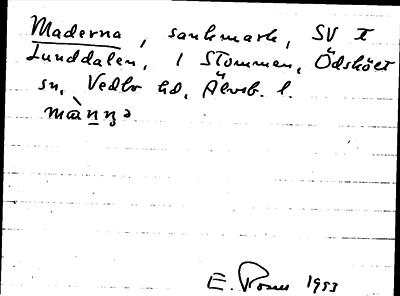 Maderna, sankmark, SV I
Lunddalen, 1 Stommen, Ödskölt
sn, Vedbo hd, Älvsb. l.
1953